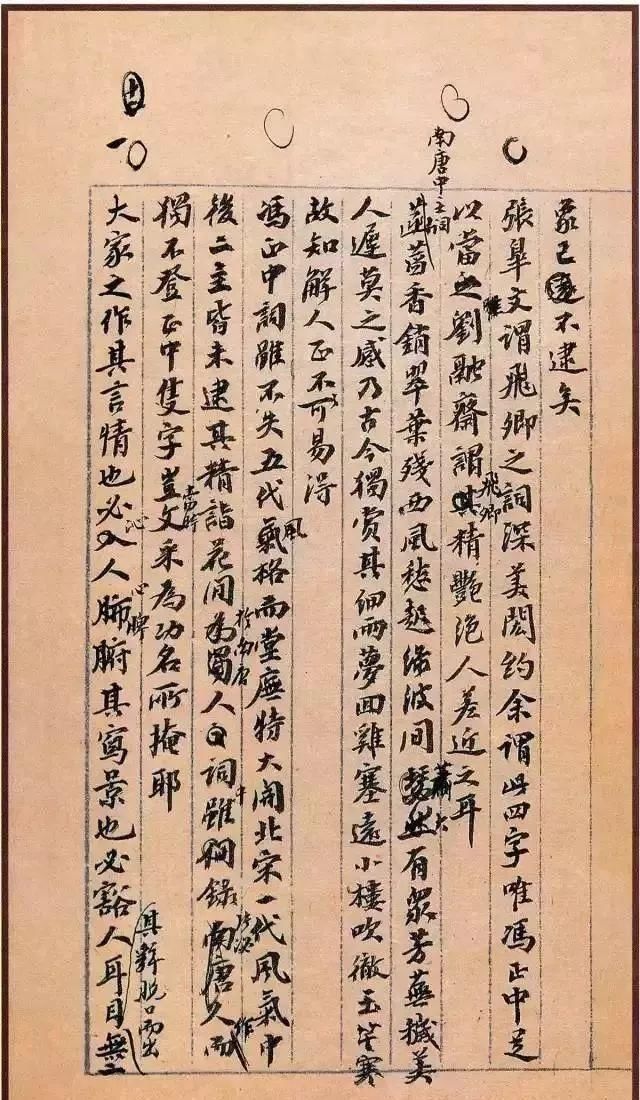 家已不逮矣
張皋文謂飛卿之詞深美閎約余謂此四字唯馮正中足
以當之劉融齋謂飛卿精豔絕人差近之耳
南唐中主詞菡萏香銷翠葉殘西風愁起綠波間大有眾芳蕪穢美
人遲莫之感乃古今獨賞其細雨夢回雞塞遠小樓吹徹玉笙寒
故知解人正不可易得
馮正中詞雖不失五代風格而堂廡特大開北宋一代風氣中
後二主皆未逮其精詣花間於南唐人詞中雖錄張泌作而
獨不登正中隻字豈當時文采為功名所掩耶
大家之作其言情也必沁人心脾其寫景也必豁人耳目其辭脫口而出無